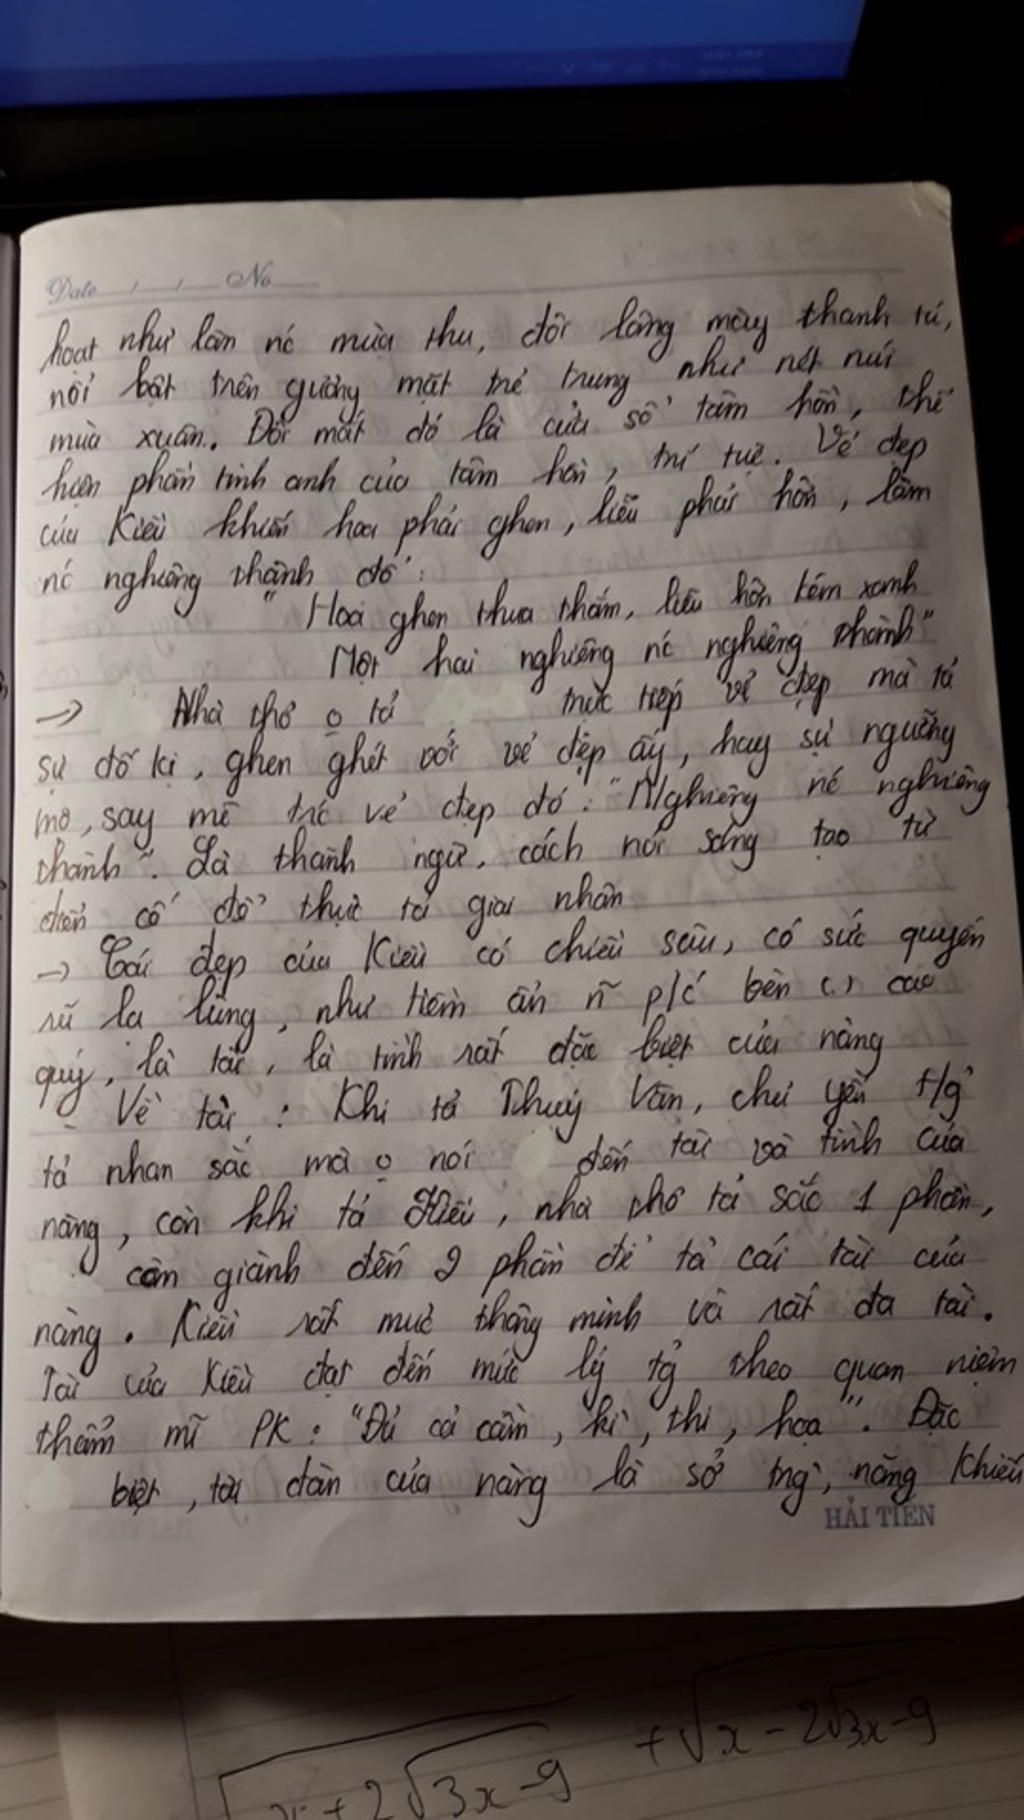 Date / / No
hoạt như làn nc mùa thu, đôi lông mày thanh tú,
nổi bật trên gương mặt trẻ trung như nét núi
mùa xuân. Đôi mắt đó là cửa sổ tâm hồn, thể
hiện phần tinh anh của tâm hồn, trí tuệ. Vẻ đẹp
của Kiều khiến hoa phải ghen, liễu phải hờn, làm
nc nghiêng thành đổ:
"Hoa ghen thua thắm, liễu hờn kém xanh
Một hai nghiêng nc nghiêng thành"
→ Nhà thơ o tả trực tiếp vẻ đẹp mà tả
sự đố kị, ghen ghét với vẻ đẹp ấy, hay sự ngưỡng
mộ, say mê trc vẻ đẹp đó. "Nghiêng nc nghiêng
thành". Là thành ngữ, cách nói sáng tạo từ
điển cố để cực tả giai nhân
→ Cái đẹp của Kiều có chiều sâu, có sức quyến
rũ lạ lùng, như tiềm ẩn n~ p/c bên (.) cao
quý, là tài, là tình rất đặc biệt của nàng
- Về tài : Khi tả Thuý Vân, chủ yếu t/g
tả nhan sắc mà o nói đến tài và tình của
nàng, còn khi tả Kiều, nhà thơ tả sắc 1 phần,
còn giành đến 2 phần để tả cái tài của
nàng. Kiều rất mực thông minh và rất đa tài.
Tài của Kiều đạt đến mức lý tg theo quan niệm
thẩm mĩ PK : "Đủ cả cầm, kì, thi, họa". Đặc
biệt, tài đàn của nàng là sở trg, năng khiếu
HẢI TIẾN
+√x - 2√3x-9
√x + 2√3x-9